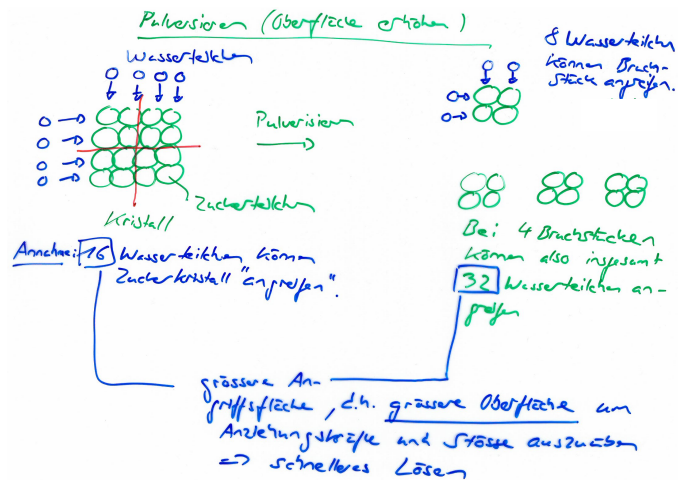 Pulverisieren (Oberfläche erhöhen)
Wasserteilchen
8 Wasserteilchen
können Bruch-
stück angreifen.
Pulverisieren
Zuckerteilchen
Kristall
Annahme: 16 Wasserteilchen können
Zuckerkristall "angreifen".
Bei 4 Bruchstücken
können also insgesamt
32 Wasserteilchen an-
greifen
grössere An-
griffsfläche, d.h. grössere Oberfläche um
Anziehungskräfte und Stösse auszuüben
=> schnelleres Lösen